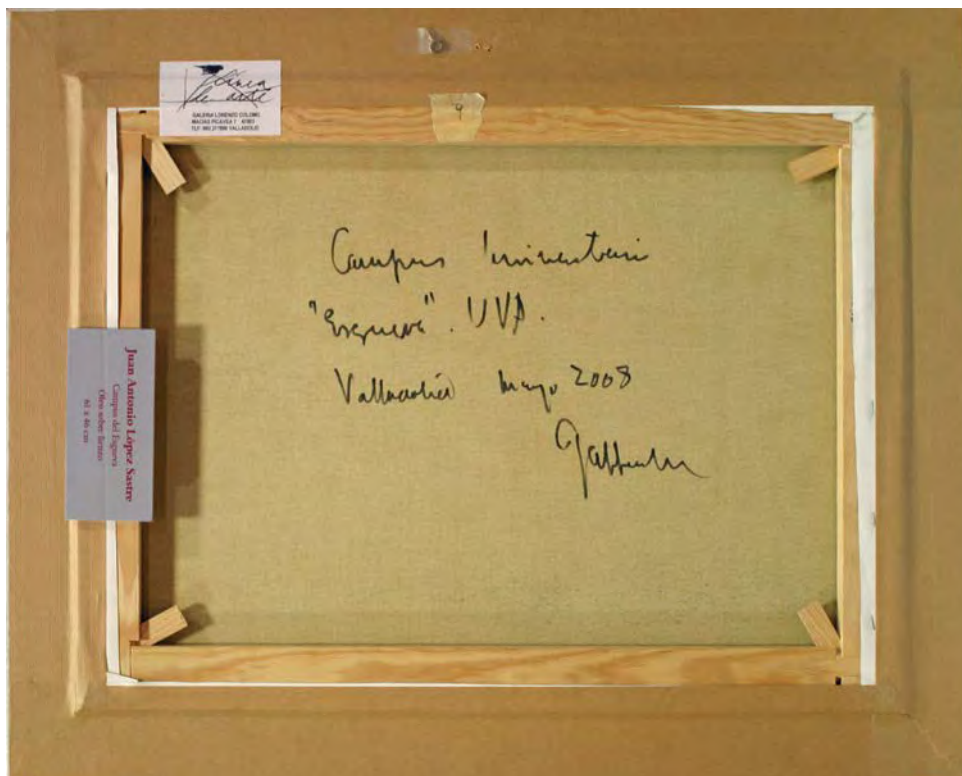 GALERIA LORENZO COLOMO
VALLADOLID
9
Campus Universitario
"Esgueva". UVA.
Valladolid mayo 2008
Juan Antonio López Sastre
Campus del Esgueva
Óleo sobre lienzo
61 x 46 cm